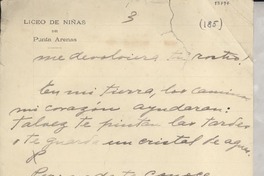 3
(185)
LICEO DE NIÑAS
DE
Punta Arenas
me devolviera tu rostro!
En mi tierra, los caminos
mi corazón ayudaran:
talvez te pintan las tardes
o te guarda un cristal de aguas.